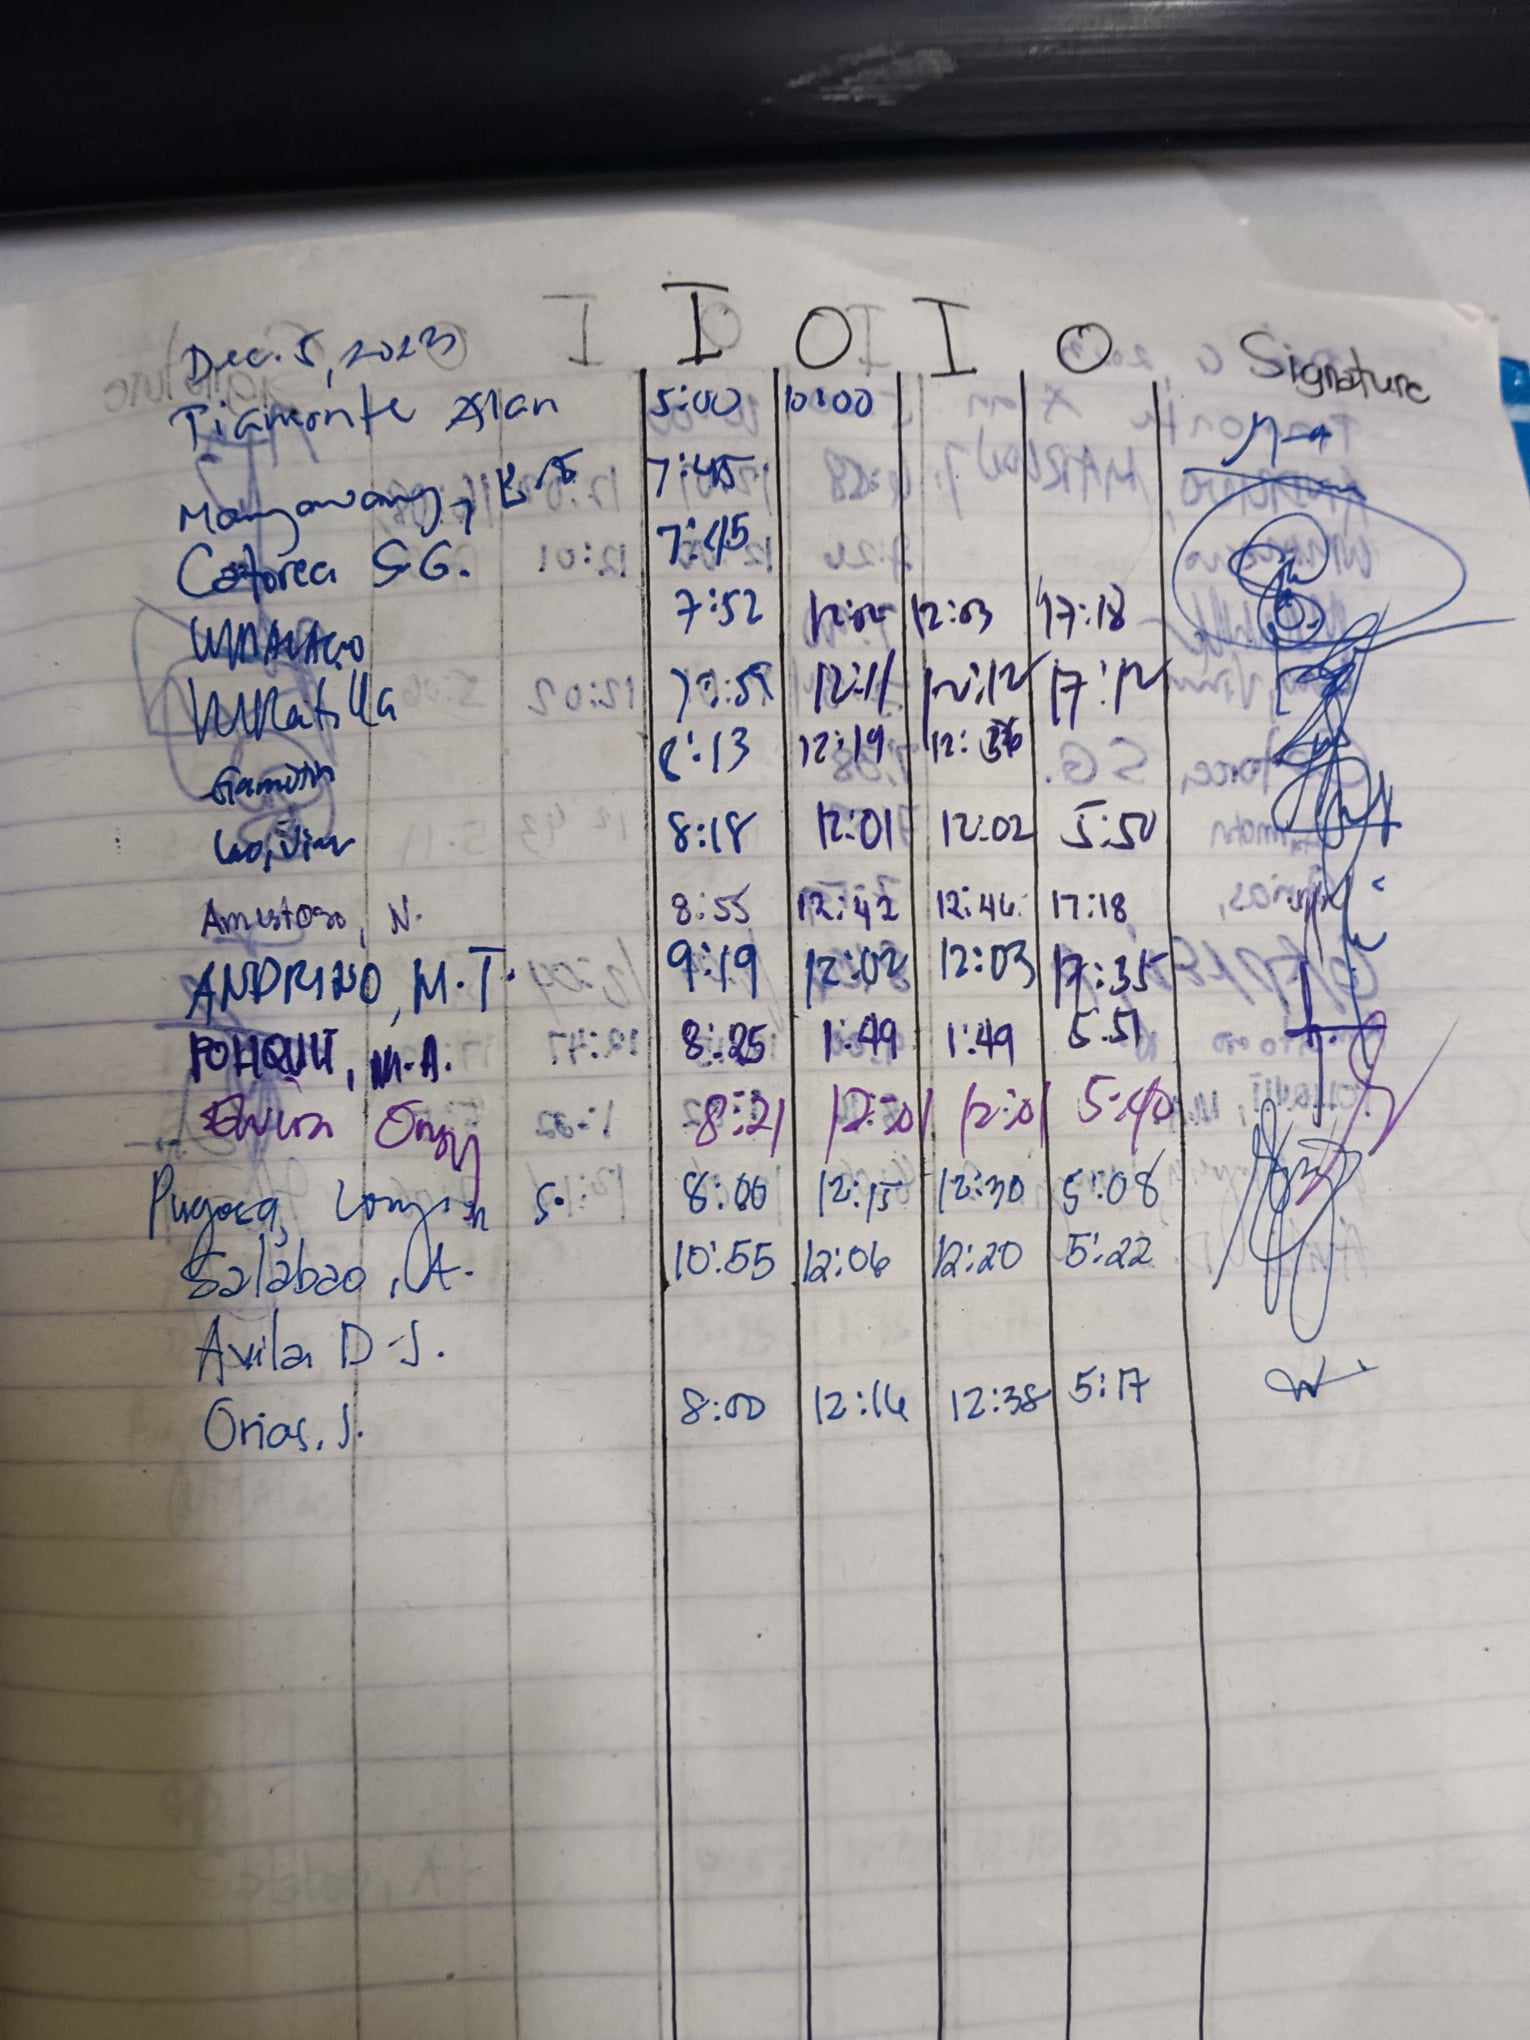 I O I O Signature
Dec. 5, 2023
Tiamonte Alan 5:00 10:00
7:45
Catorea S.G. 7:45
7:52 12:02 12:03 17:18
7:59 12:11 12:12 17:12
Gamotin 8:13 12:19 12:36
8:18 12:01 12:02 5:50
Amistoso, N. 8:55 12:42 12:46 17:18
ANDRINO, M.T. 9:19 12:02 12:03 17:35
M.A. 8:25 1:49 1:49 5:51
8:21 12:01 12:01 5:40
S. 8:00 12:15 12:30 5:08
Salabao, A. 10:55 12:06 12:20 5:22
Avila D.J.
Orias, J. 8:00 12:16 12:38 5:17